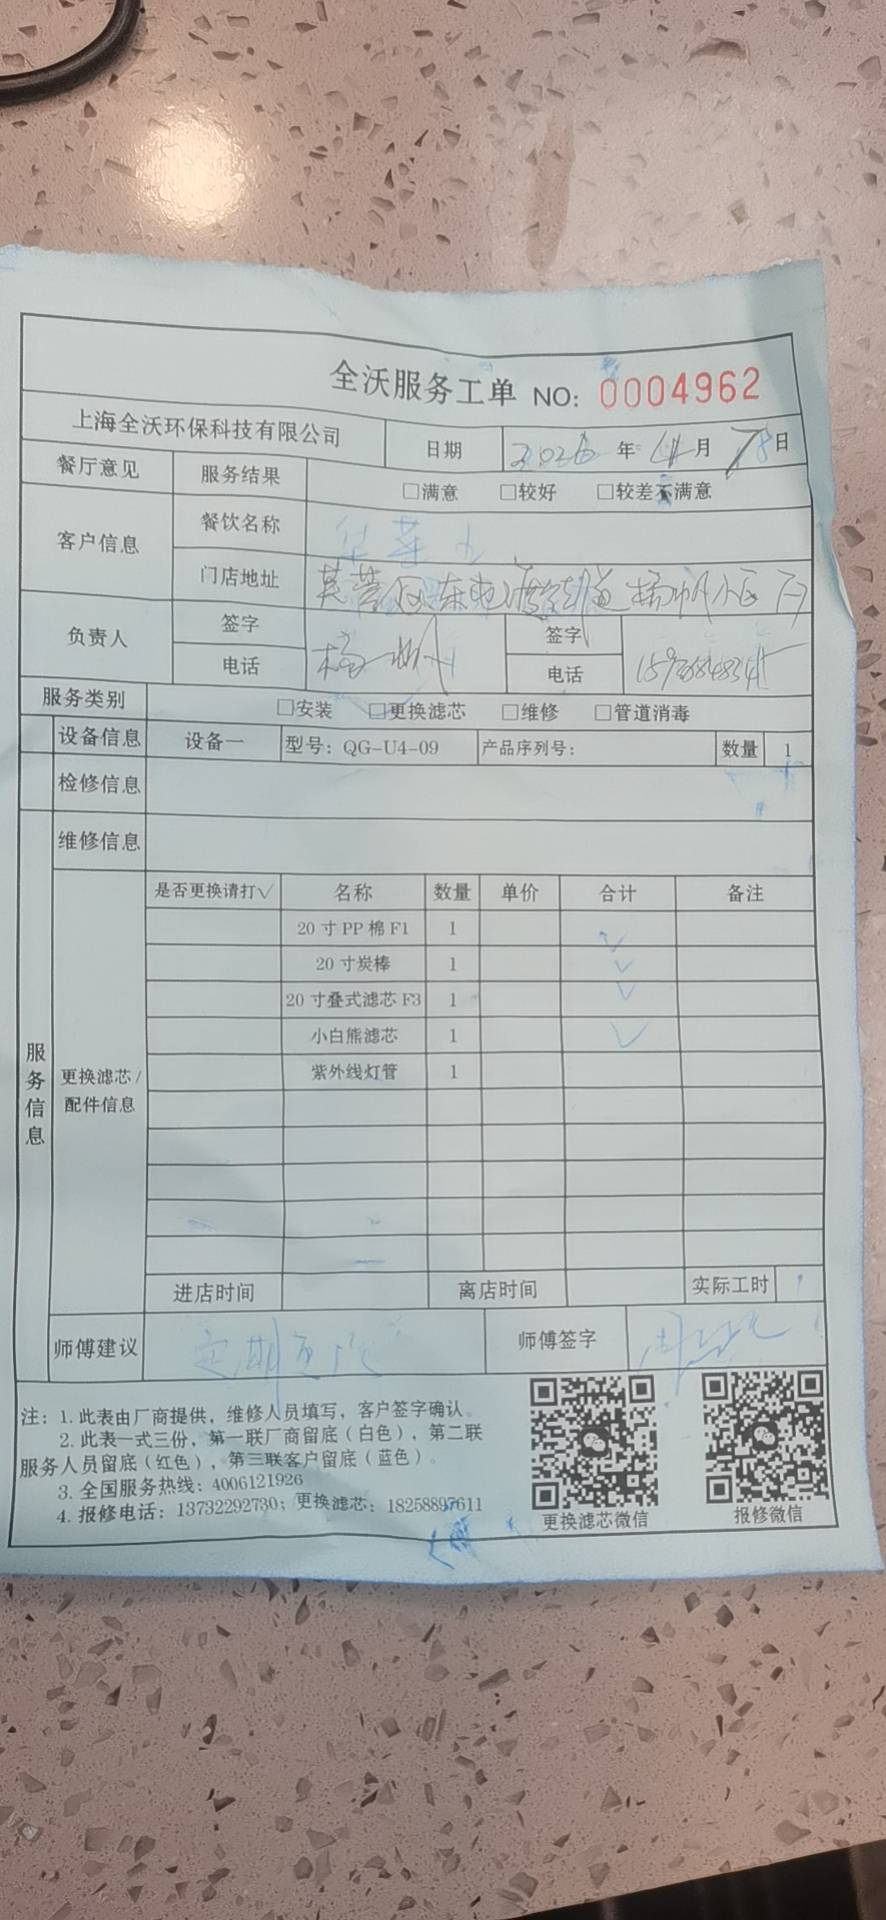 全沃服务工单 NO: 0004962
上海全沃环保科技有限公司 日期 2026 年 4月 8日
餐厅意见 服务结果 □满意 □较好 □较差不满意
客户信息 餐饮名称 华莱士
门店地址
负责人 签字 签字
电话 电话
服务类别 □安装 □更换滤芯 □维修 □管道消毒
设备信息 设备一 型号: QG-U4-09 产品序列号: 数量 1
检修信息
维修信息
服务信息
更换滤芯/
配件信息
是否更换请打√ 名称 数量 单价 合计 备注
20寸PP棉F1 1 √
20寸炭棒 1 √
20寸叠式滤芯F3 1 √
小白熊滤芯 1 √
紫外线灯管 1
进店时间 离店时间 实际工时
师傅建议 定期更换 师傅签字
注: 1. 此表由厂商提供，维修人员填写，客户签字确认。
2. 此表一式三份，第一联厂商留底（白色），第二联
服务人员留底（红色），第三联客户留底（蓝色）。
3. 全国服务热线: 4006121926
4. 报修电话: 13732292730; 更换滤芯: 18258897611
更换滤芯微信 报修微信